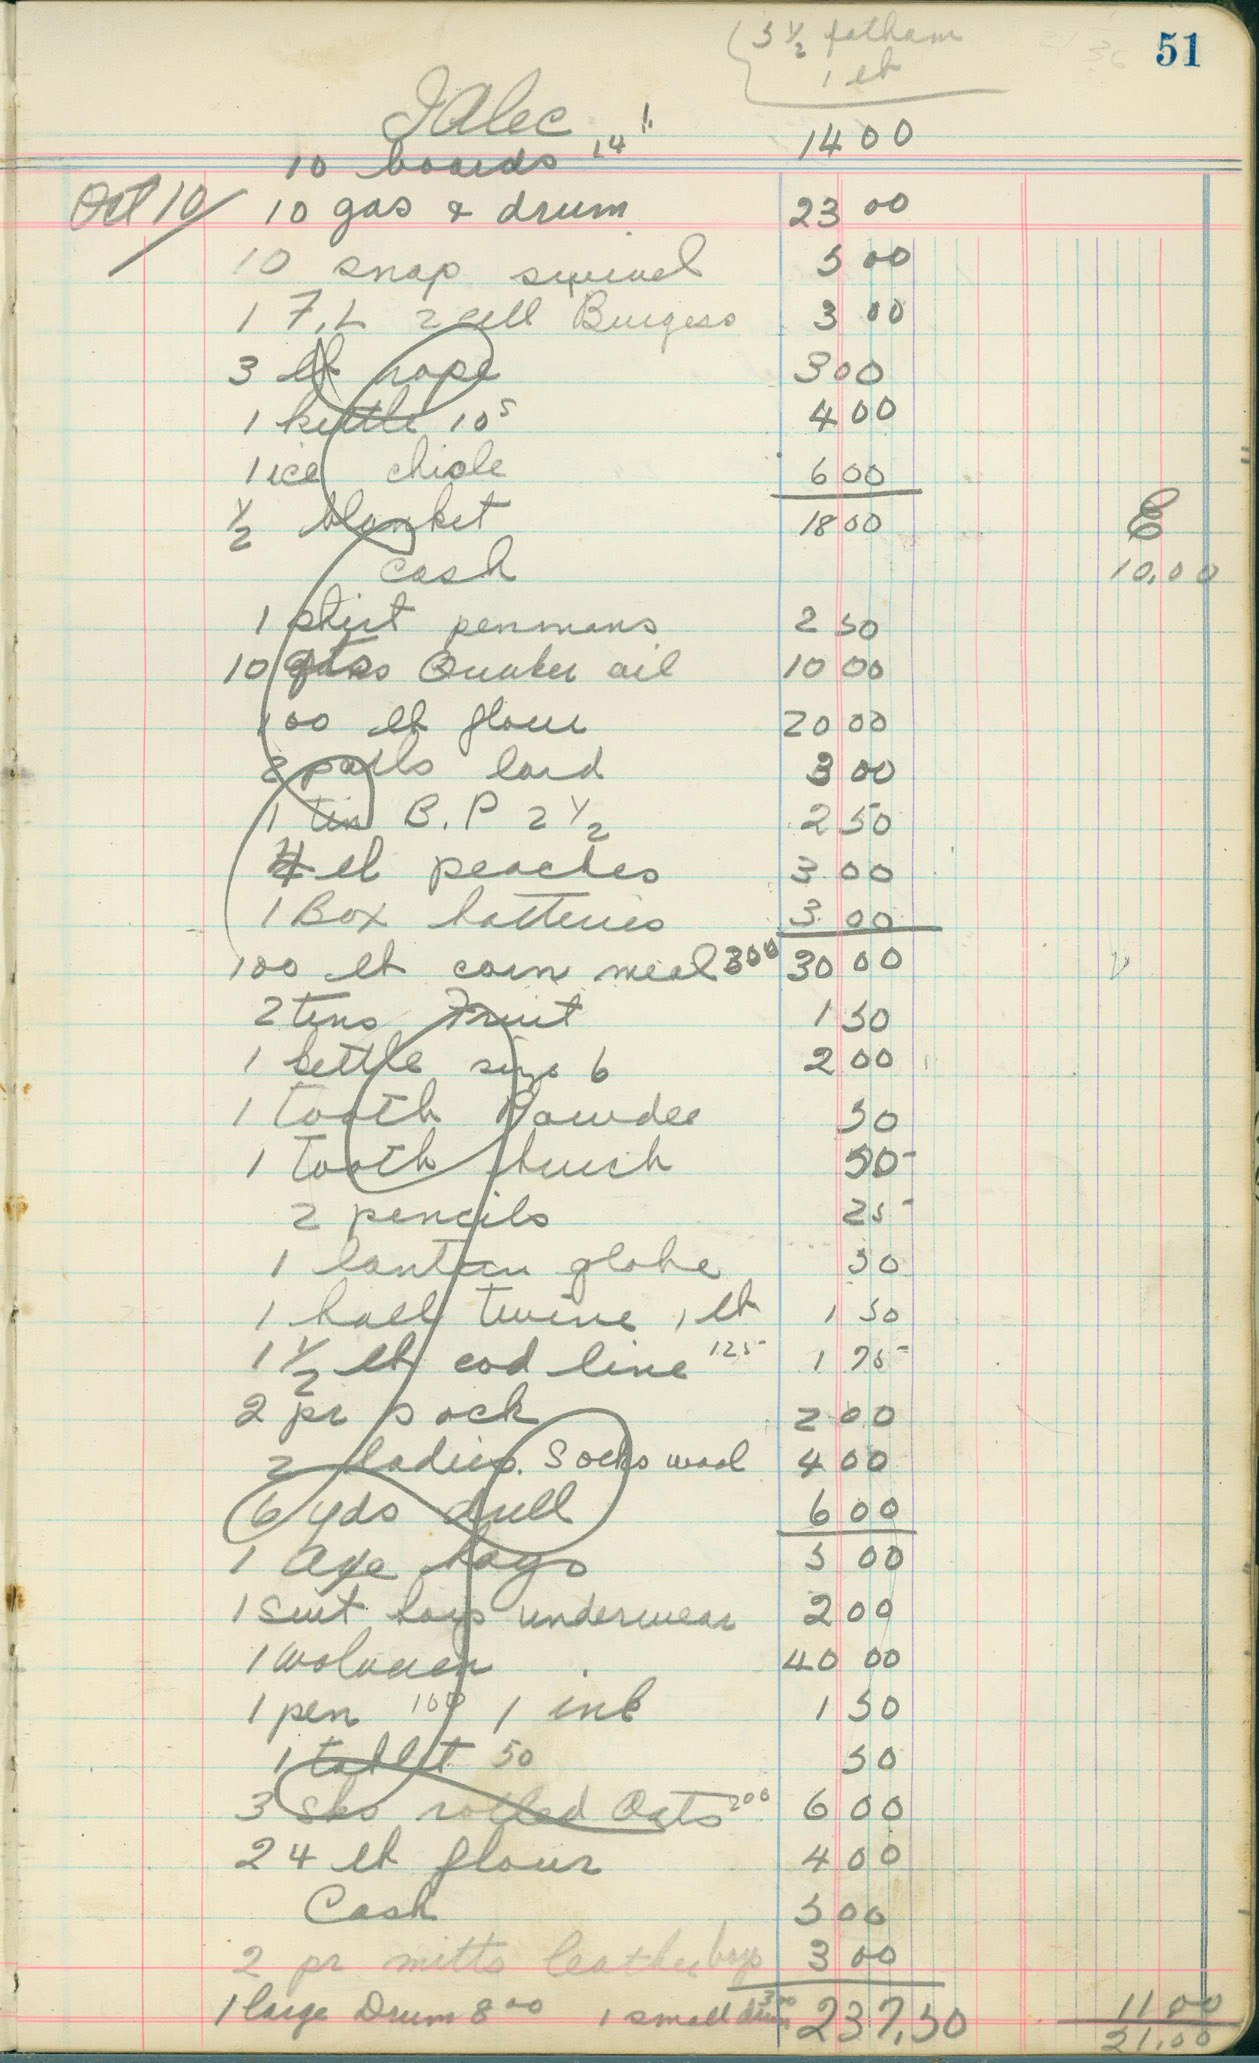 51
3 ½ fatham
1 lb
J Alec
10 boards 14' 14 00
Oct 10/ 10 gas & drum 23 00
10 snap swivel 5 00
1 F.L 2 cell Burgess 3 00
3 lb rope 3 00
1 kettle 10s 4 00
1 ice chisle 6 00
½ blanket 18 00 Cr
cash 10.00
1 shirt penmans 2 50
10 qts Quaker oil 10 00
100 lb flour 20 00
3 pails lard 3 00
1 tin B.P 2 ½ 2 50
4 lb peaches 3 00
1 Box batteries 3 00
100 lb corn meal 300 30 00
2 tins Fruit 1 50
1 kettle size 6 2 00
1 tooth Powder 50
1 tooth brush 50-
2 pencils 25-
1 lantern globe 50
1 ball twine 1 lb 1 50
1 ½ lb cod line 125- 1 75-
2 pr sock 2 00
2 ladies. Socks wool 4 00
6 yds drill 6 00
1 axe boys 5 00
1 suit boys underwear 2 00
1 40 00
1 pen 100 1 ink 1 50
1 tablet 50 50
3 sks rolled Oats 200 6 00
24 lb flour 4 00
Cash 5 00
2 pr mitts leather boys 3 00
1 large Drum 8 00 1 small drum 3 00 237.50 11 00
21.00